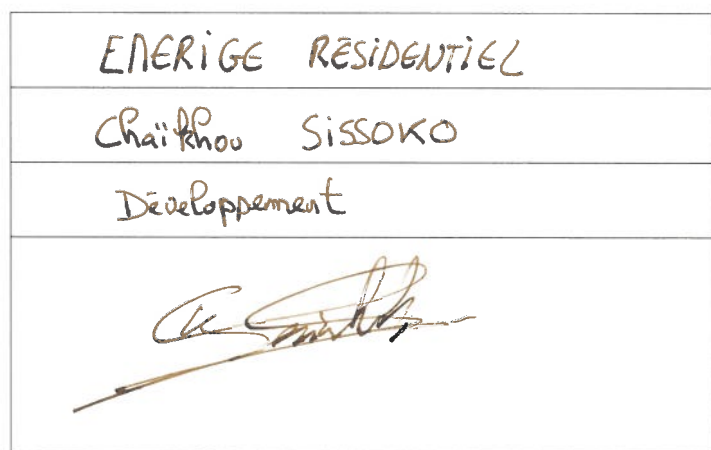 ENERIGE RÉSIDENTIEL
Chaïkhou SISSOKO
Développement